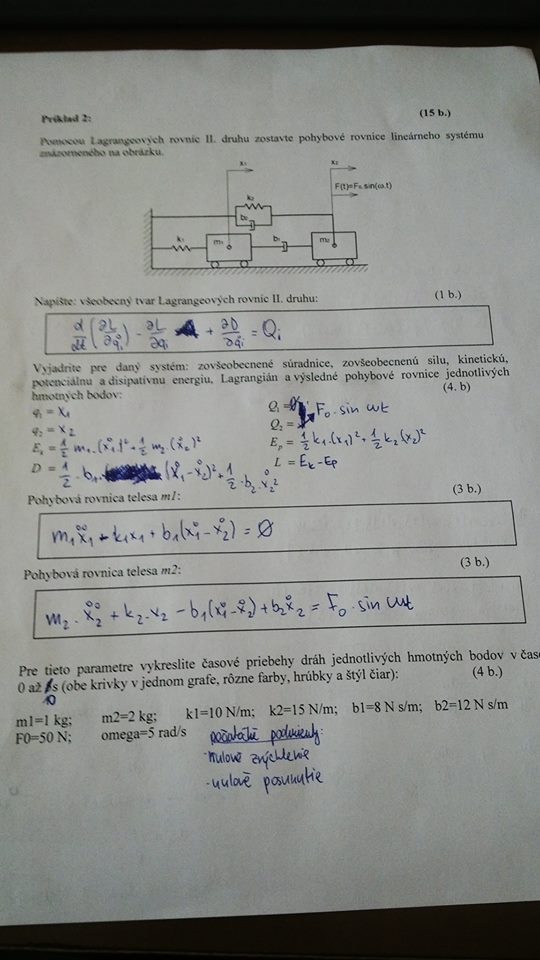 Príklad 2: (15 b.)
Pomocou Lagrangeových rovníc II. druhu zostavte pohybové rovnice lineárneho systému
znázorneného na obrázku.
x₁ x₂
F(t)=F₀.sin(ω.t)
k₂
b₂
k₁ m₁ b₁ m₂
Napíšte: všeobecný tvar Lagrangeových rovníc II. druhu: (1 b.)
d/dt (∂L/∂q̇ᵢ) - ∂L/∂qᵢ + ∂D/∂q̇ᵢ = Qᵢ
Vyjadrite pre daný systém: zovšeobecnené súradnice, zovšeobecnenú silu, kinetickú,
potenciálnu a disipatívnu energiu, Lagrangián a výsledné pohybové rovnice jednotlivých
hmotných bodov: (4. b)
q₁ = x₁ Q₁ = 0
q₂ = x₂ Q₂ = F₀ . sin ωt
Eₖ = 1/2 m₁.(ẋ₁)² + 1/2 m₂.(ẋ₂)² Eₚ = 1/2 k₁.(x₁)² + 1/2 k₂(x₂)²
D = 1/2 . b₁ (ẋ₁-ẋ₂)² + 1/2 . b₂ . ẋ₂² L = Eₖ-Eₚ
Pohybová rovnica telesa m1: (3 b.)
m₁ẍ₁ + k₁x₁ + b₁(ẋ₁-ẋ₂) = 0
Pohybová rovnica telesa m2: (3 b.)
m₂ . ẍ₂ + k₂.x₂ - b₁(ẋ₁-ẋ₂) + b₂ẋ₂ = F₀ . sin ωt
Pre tieto parametre vykreslite časové priebehy dráh jednotlivých hmotných bodov v čase
0 až s (obe krivky v jednom grafe, rôzne farby, hrúbky a štýl čiar): (4 b.)
10
m1=1 kg; m2=2 kg; k1=10 N/m; k2=15 N/m; b1=8 N s/m; b2=12 N s/m
F0=50 N; omega=5 rad/s
počiatočné podmienky:
-nulové zrýchlenie
-nulové posunutie